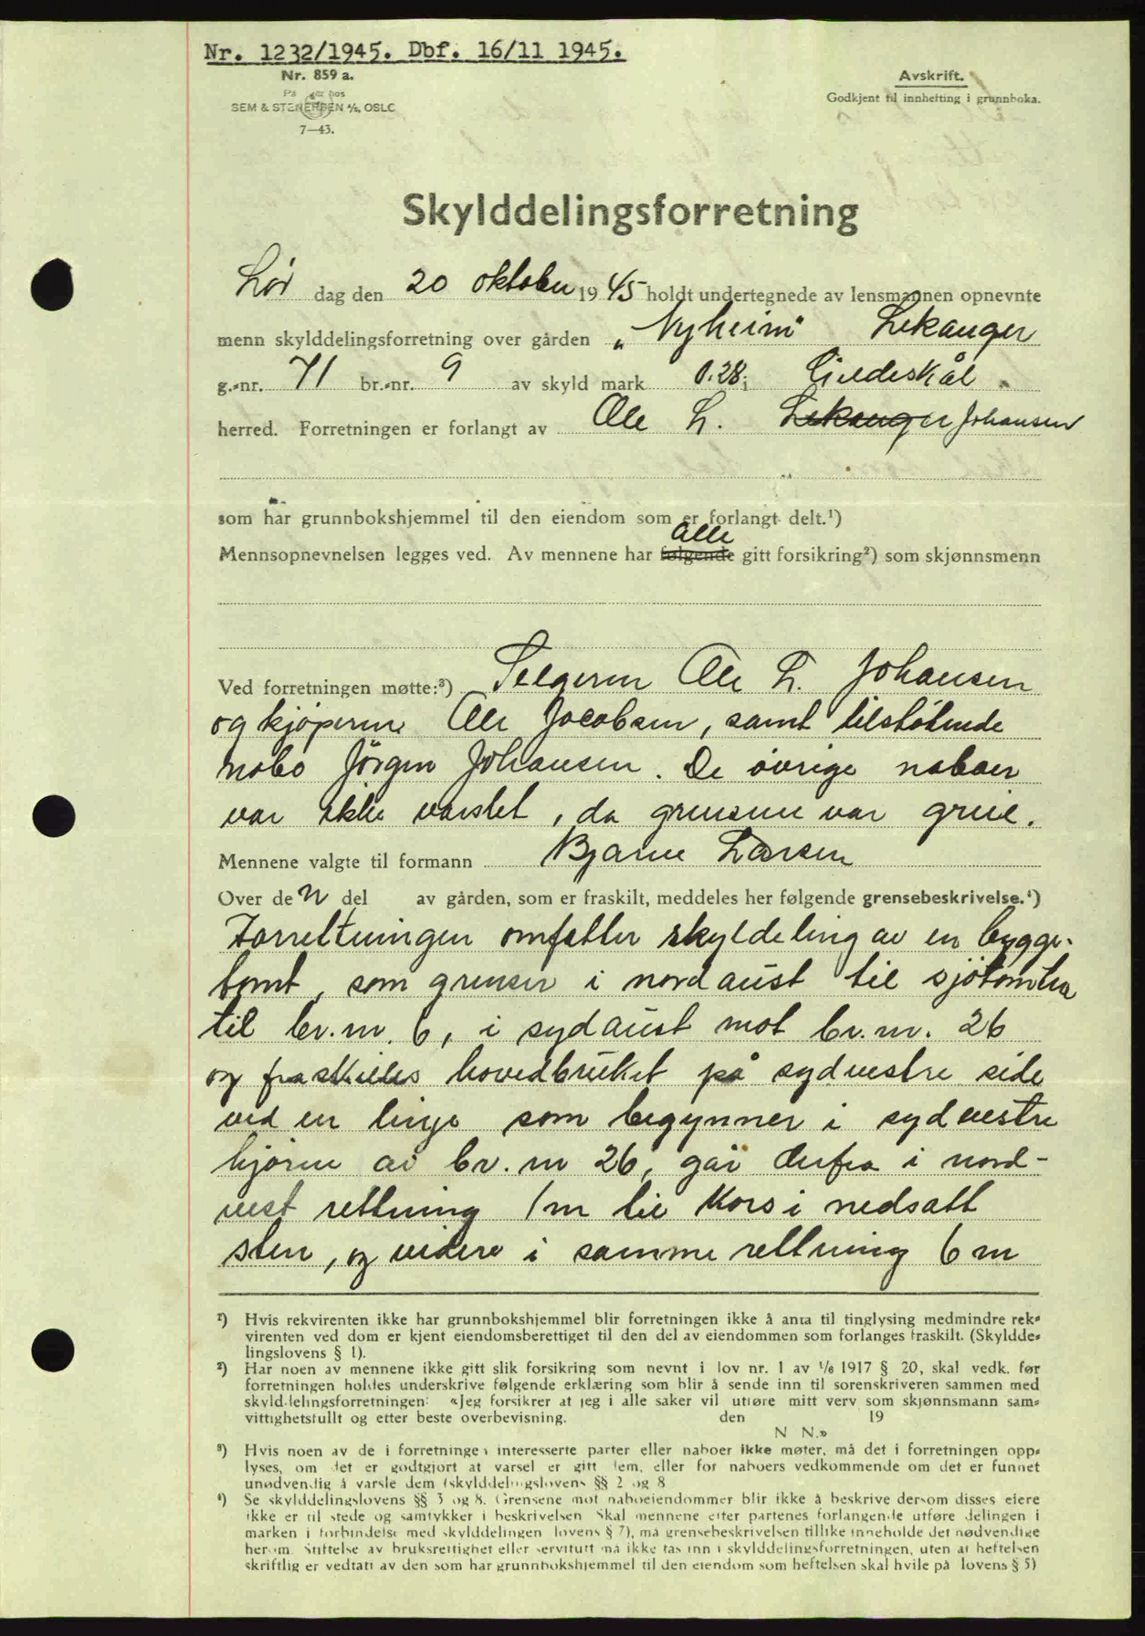 Nr. 1232/1945. Dbf. 16/11 1945.
Nr. 859 a.
SEM & STENERSEN A/S, OSLO
7—43.
Avskrift.
Godkjent til innhefting i grunnboka.
Skylddelingsforretning
Lør dag den 20 oktober 1945 holdt undertegnede av lensmannen opnevnte
menn skylddelingsforretning over gården „Nyheim" Lekanger
g.-nr. 71 br.-nr. 9 av skyld mark 0.28 i Gildeskål
herred. Forretningen er forlangt av Ole L. Lekanger Johansen
som har grunnbokshjemmel til den eiendom som er forlangt delt.¹)
alle
Mennsopnevnelsen legges ved. Av mennene har følgende gitt forsikring²) som skjønnsmenn
Ved forretningen møtte:³) Selgeren Ole L. Johansen
og kjøperen Ole Jacobsen, samt tilstøtende
nabo Jörgen Johansen. De øvrige naboer
var ikke varslet, da grensene var greie.
Mennene valgte til formann Bjarne Larsen
Over den del av gården, som er fraskilt, meddeles her følgende grensebeskrivelse.⁴)
Forretningen omfatter skyldeling av en bygge-
tomt, som grenser i nordaust til sjøtomta
til br.nr. 6, i sydaust mot br.nr. 26
og fraskilles hovedbruket på sydvestre side
ved en linje som begynner i sydvestre
hjørne av br.nr 26, går derfra i nord-
vest rettning 1m til kors i nedsatt
sten, og videre i samme rettning 6 m
¹) Hvis rekvirenten ikke har grunnbokshjemmel blir forretningen ikke å anta til tinglysing medmindre rek-
virenten ved dom er kjent eiendomsberettiget til den del av eiendommen som forlanges fraskilt. (Skyldde-
lingslovens § 1).
²) Har noen av mennene ikke gitt slik forsikring som nevnt i lov nr. 1 av 1/6 1917 § 20, skal vedk. før
forretningen holdes underskrive følgende erklæring som blir å sende inn til sorenskriveren sammen med
skylddelingsforretningen: «Jeg forsikrer at jeg i alle saker vil utføre mitt verv som skjønnsmann sam-
vittighetsfullt og etter beste overbevisning. den 19
N. N.»
³) Hvis noen av de i forretningen interesserte parter eller naboer ikke møter, må det i forretningen opp-
lyses, om det er godtgjort at varsel er gitt dem, eller for naboers vedkommende om det er funnet
unødvendig å varsle dem (skylddelingslovens §§ 2 og 8
⁴) Se skylddelingslovens §§ 3 og 8. Grensene mot naboeiendommer blir ikke å beskrive dersom disses eiere
ikke er til stede og samtykker i beskrivelsen Skal mennene etter partenes forlangende utføre delingen i
marken i forbindelse med skylddelingen lovens § 7), må grensebeskrivelsen tillike inneholde det nødvendige
herom. Stiftelse av bruksrettighet eller servitutt må ikke tas inn i skylddelingsforretningen, uten at heftelsen
skriftlig er vedtatt av den som har grunnbokshjemmel til den eiendom som heftelsen skal hvile på lovens § 5)